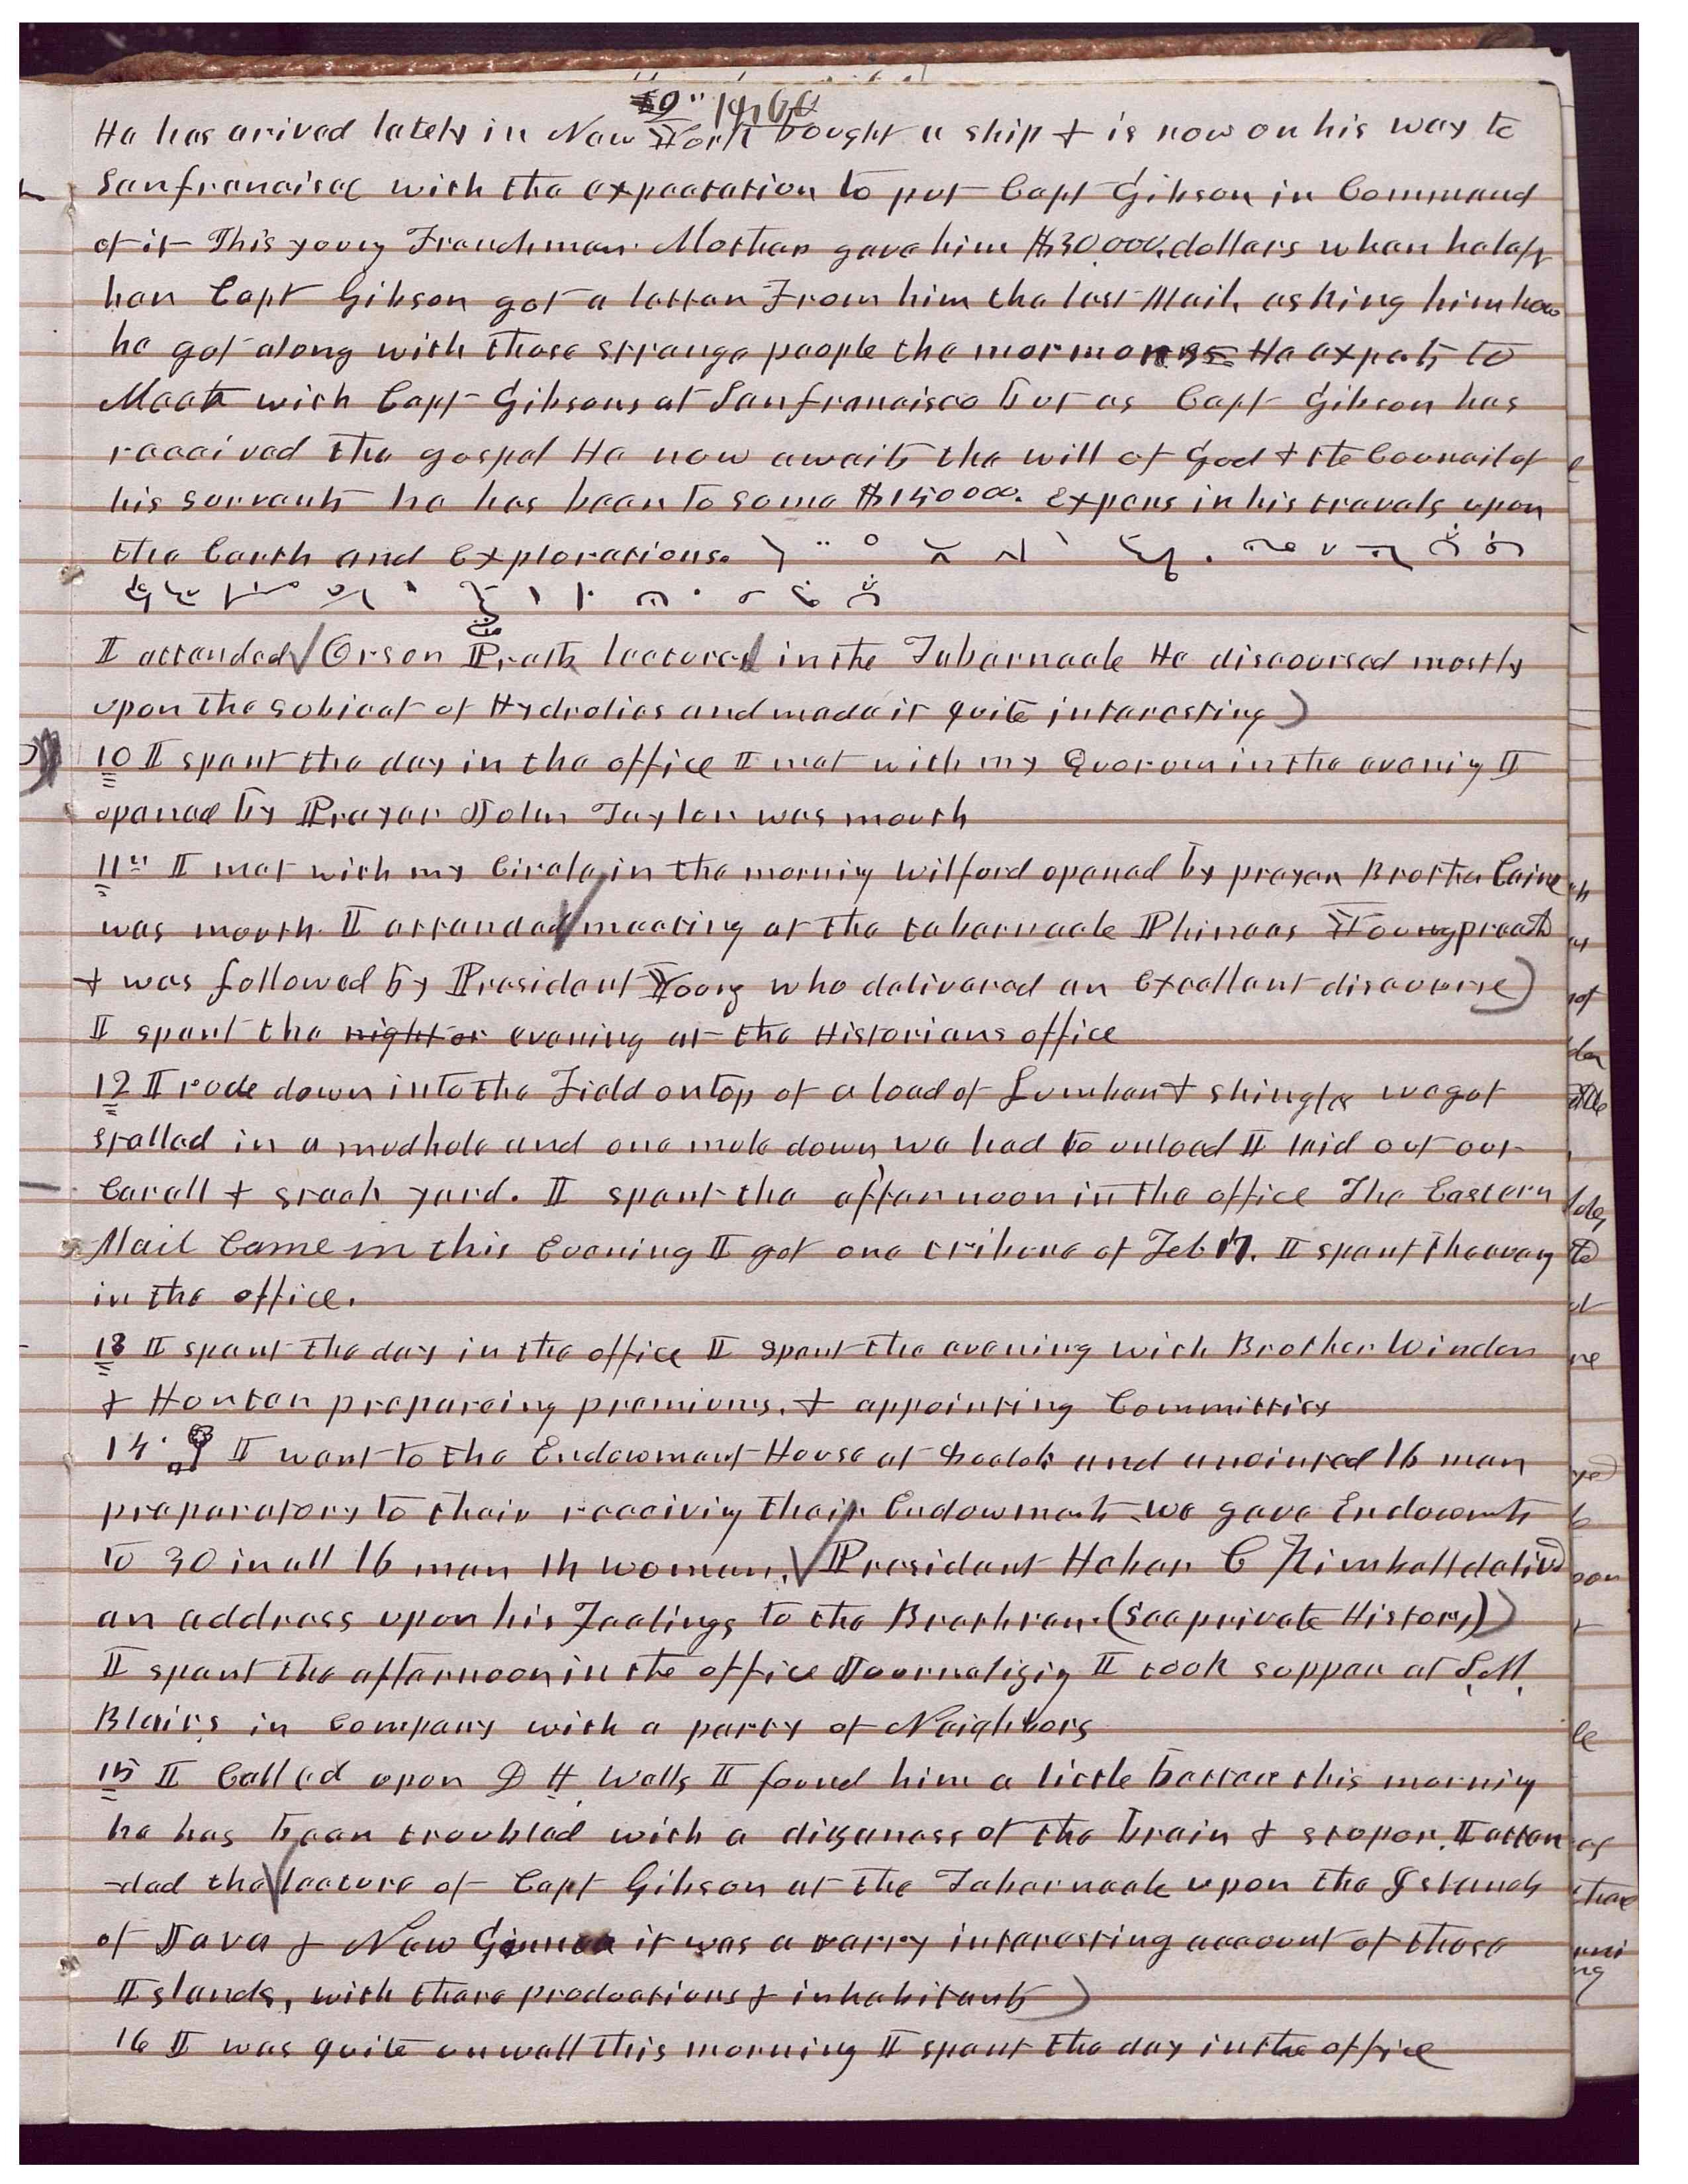 9" 1860
He has arived lately in New York bought a ship & is now on his way to
Sanfrancisco with the expectation to put Capt Gibson in Command
of it This young Frenchman Mother gave him $30,000, dollars when he left
her Capt Gibson got a letter From him the last Mail, asking him how
he got along with those strange people the mormons He expects to
Meet with Capt Gibsons at Sanfrancisco but as Capt Gibson has
received the gospel He now awaits the will of God & the Councils of
his servants he has been to some $150000. expens in his travels upon
the Earth and explorations.
I attended Orson Pratts lectures in the Tabernacle He discoursed mostly
upon the subject of Hydrolics and made it quite interesting)
10 I spent the day in the office I met with my Quorum in the evenig I
opened by Prayer John Taylor was mouth
11" I met with my Circle in the mornig Wilford opened by prayer Brother Caine
was mouth. I attended meeting at the tabernacle Phineas Young preachd
& was followed by President Young who delivered an excellent discourse)
I spent the night or evening at the Historians office
12 I rode down into the Field on top of a load of Lumber & shingles we got
stalled in a mudhole and one mule down, we had to unload I laid out our
Carall & stack yard. I spent the afternoon in the office The Eastern
Mail Came in this Evening I got one tribune of Feb 17. I spent the eveng
in the office.
13 I spent the day in the office I spent the evening with Brother Winder
& Honter prepareing premiums, & appointing Committies
14 I went to the Endowment House at and anointed 16 men
preparatory to their receivig their Endowments we gave Endowmts
to 30 in all 16 men 14 women, President Heber C Kimball delivd
an address upon his Feelings to the Brethren. (See private History)
I spent the afternoon in the office Journalizig I took supper at S. M.
Blairs in company with a party of Neighbors
15 I Called upon D H. Wells I found him a little better this mornig
he has been troubled with a diseaness of the brain & stoper. I atten
-ded the lecture of Capt Gibson at the Tabernacle upon the Islands
of Java & New Ginnea it was a varry interesting account of those
Islands, with there productions & inhabitants)
16 I was quite unwell this morning I spent the day in the office